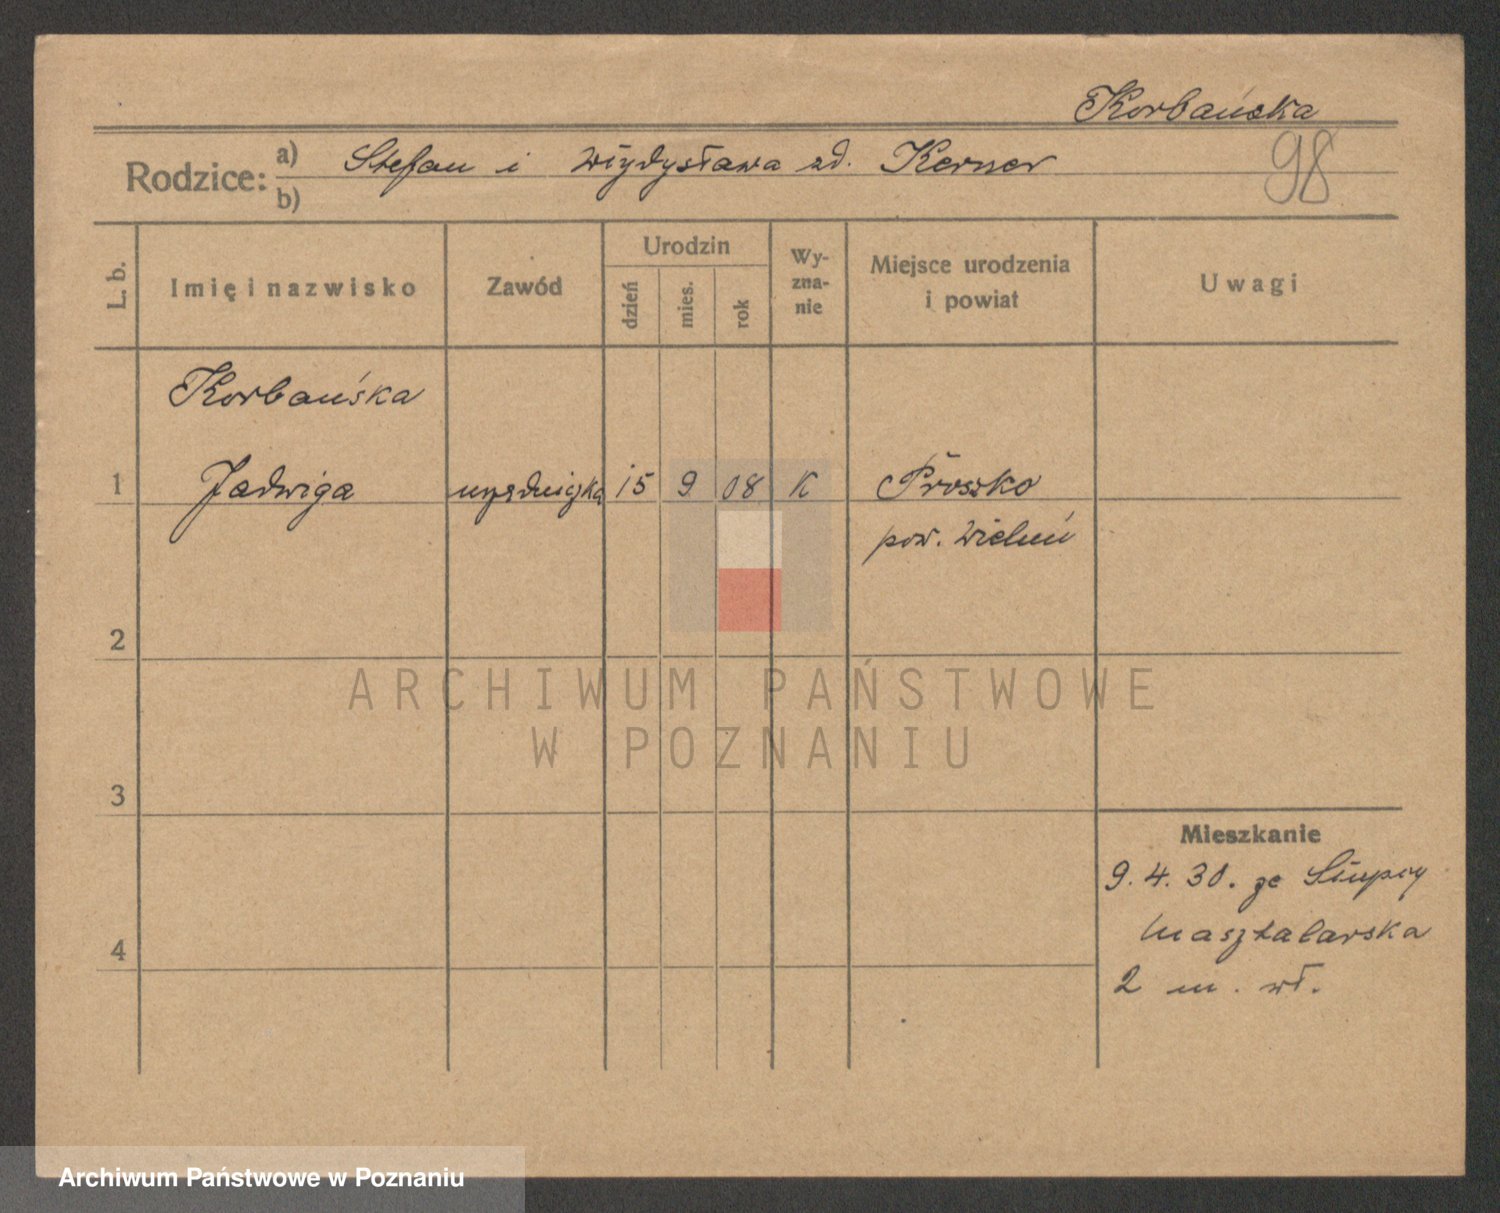 Korbańska
98
Rodzice: a) Stefan i Władysława zd. Kerner
b)
L. b.
Imię i nazwisko
Zawód
Urodzin
dzień
mies.
rok
Wy-
zna-
nie
Miejsce urodzenia
i powiat
Uwagi
Korbańska
1 Jadwiga urzędniczka 15 9 08 K
pow. Wieluń
2
3
4
Mieszkanie
9. 4. 30. ze Słupcy
Masztalarska
2 m. wł.
ARCHIWUM PAŃSTWOWE
W POZNANIU
Archiwum Państwowe w Poznaniu